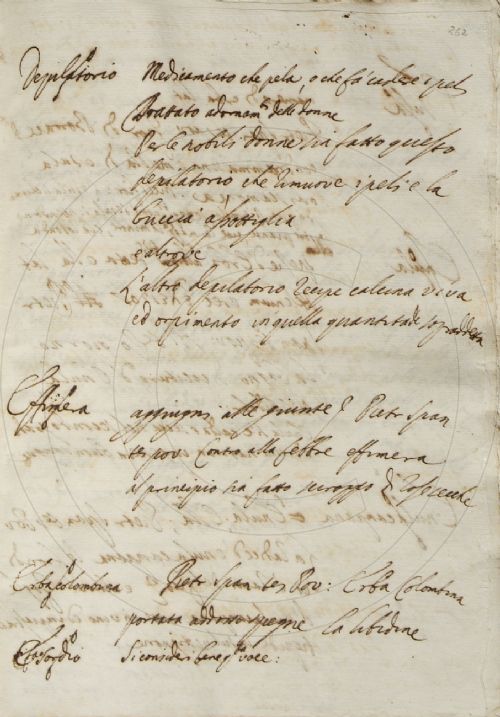 262
Depilatorio Medicamento che pela, o che fà cadere i peli
Trattato adornam.ti delle donne
Per le nobili donne sia fatto questo
depilatorio che rimuove i peli e la
buccia assottiglia
e altrove
L'altro depilatorio recipe calcina viva
ed orpimento in quella quantità di sopraddetta
Effimera aggiugni alle giunte Pietr Span
tes pov Contro alla febbre effimera
al principio sia fatto siroppo di rose secche
Erba Colombina Pietr Span tes Pov: Erba Colombina
portata addosso spegne la libidine
Si consideri bene q.ta voce: